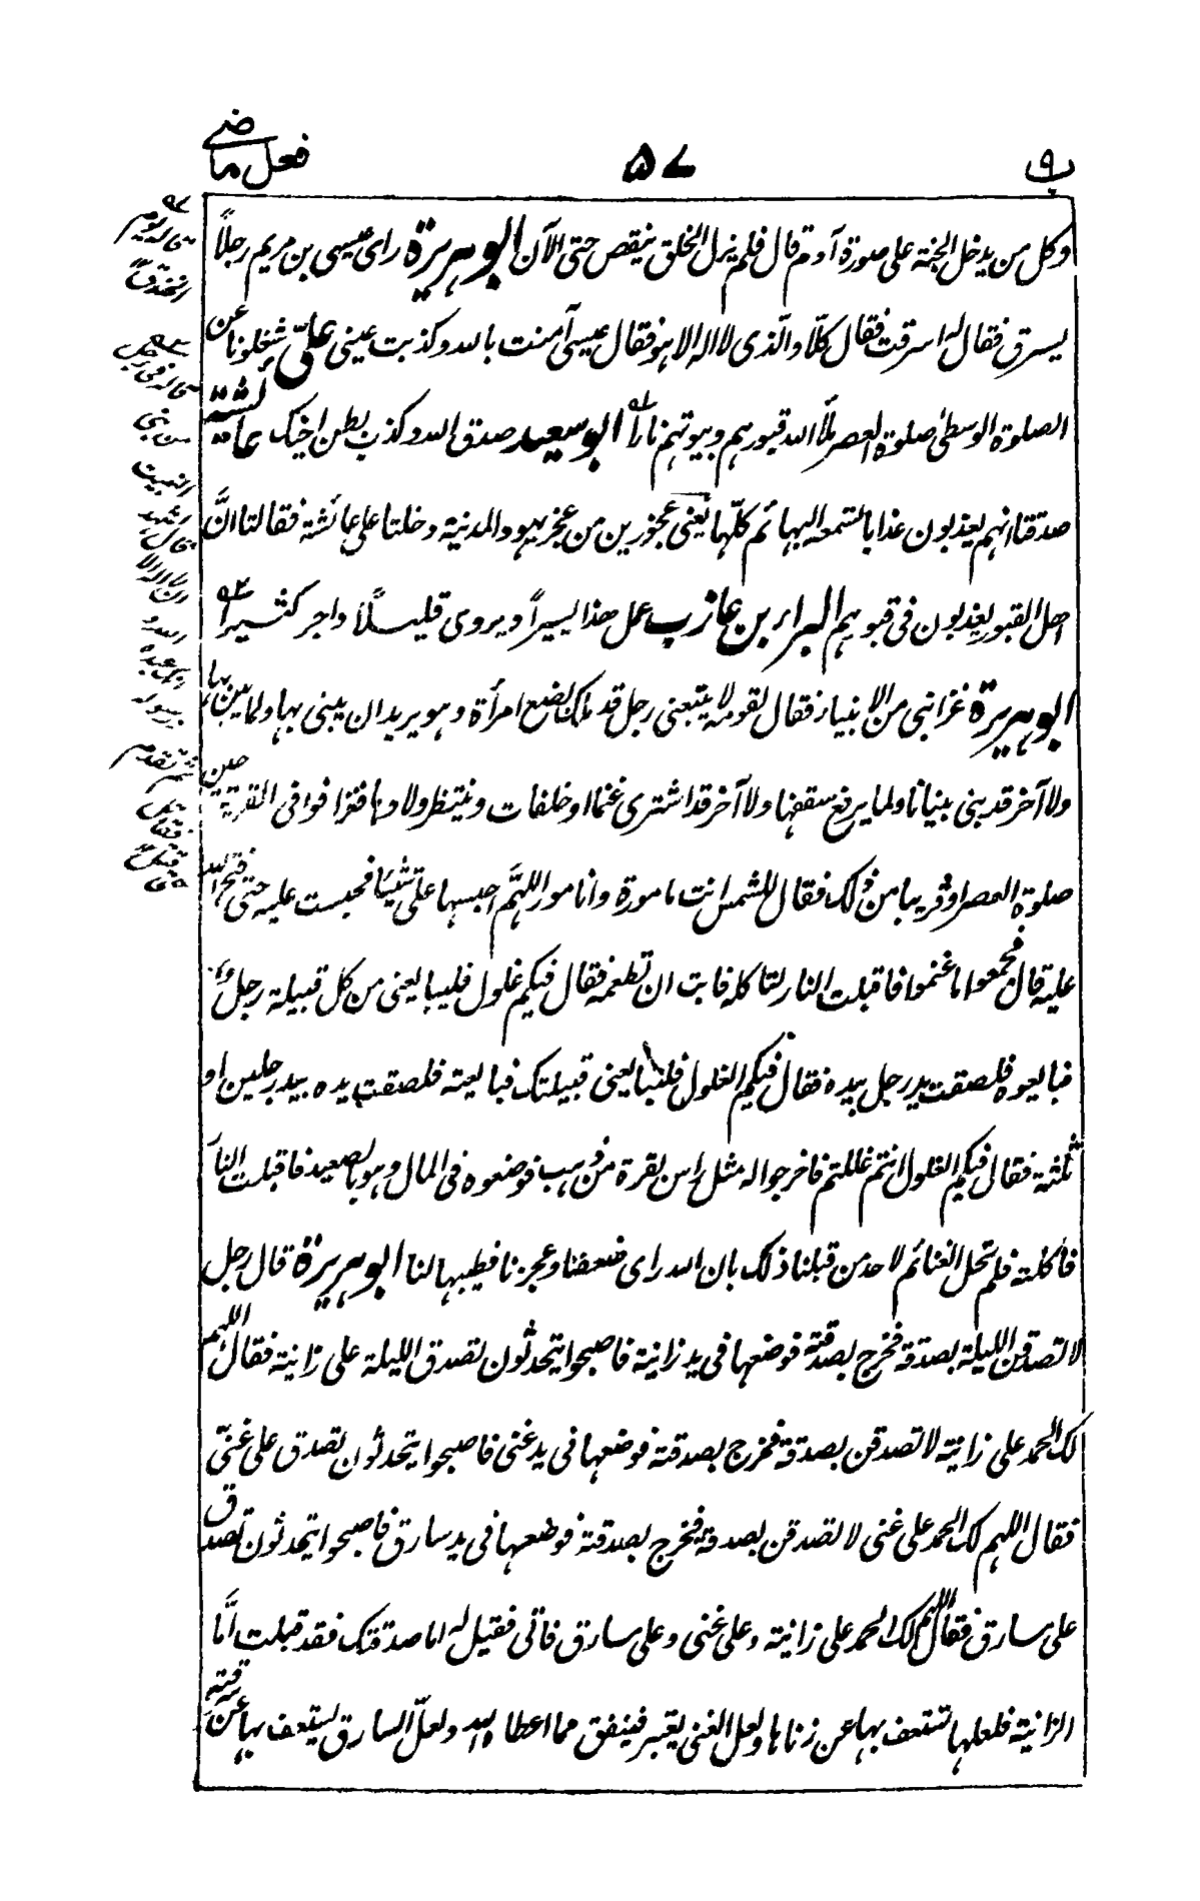 ب٩
٥٧
فعل ماضي
وكل من يدخل الجنة على صورة آدم قال فلم يزل الخلق ينقص حتى الآن ابو هريرة راى عيسى بن مريم رجلاً
يسرق فقال له اسرقت فقال كلّا والّذى لا اله الا هو فقال عيسى آمنت بالله وكذبت عينى علىّ شغلونا عن
الصلوة الوسطىٰ صلوة العصر ملأ الله قبورهم وبيوتهم ناراً ابو سعيد صدق الله وكذب بطن اخيك عائشة
صدقتا انهم يعذبون عذابا تسمعه البهائم كلّها يعنى عجوزين من عجز يهود المدينة دخلتا على عائشة فقالتا انَّ
اهل القبور يعذبون فى قبورهم البراء بن عازب عمل هذا يسيراً ويروى قليلاً واجر كثيراً
ابو هريرة غزا نبى من الانبياء فقال لقومه لا يتبعنى رجل قد ملك بضع امرأة وهو يريد ان يبنى بها ولما يبن بها
ولا آخر قد بنى بنيانا ولما يرفع سقفها ولا آخر قد اشترى غنما او خلفات وينتظر ولادها فغزا فوافى القرية حين
صلوة العصر او قريبا من ذلك فقال للشمس انت مامورة وانا مامور اللهمَّ احبسها علىّ شيئا فحبست عليه حتى فتح الله
عليه قال فجمعوا ما غنموا فاقبلت النار لتاكله فابت ان تطعمه فقال فيكم غلول فليبايعنى من كل قبيلة رجل
فبايعوه فلصقت يد رجل بيده فقال فيكم الغلول فلتبايعنى قبيلتك فبايعته فلصقت يده بيد رجلين او
ثلثة فقال فيكم الغلول انتم غللتم فاخرجوا له مثل راس بقرة من ذهب فوضعوه فى المال وهو بالصعيد فاقبلت النار
فاكلته فلم تحل الغنائم لاحد من قبلنا ذلك بان الله راى ضعفنا وعجزنا فطيبها لنا ابو هريرة قال رجل
لاتصدقن الليلة بصدقة فخرج بصدقته فوضعها فى يد زانية فاصبحوا يتحدثون تصدق الليلة على زانية فقال اللهم
لك الحمد على زانية لاتصدقن بصدقة فخرج بصدقته فوضعها فى يد غنى فاصبحوا يتحدثون تصدق على غنىّ
فقال اللهم لك الحمد على غنى لاتصدقن بصدقة فخرج بصدقته فوضعها فى يد سارق فاصبحوا يتحدثون تصدق
على سارق فقال اللهم لك الحمد على زانية وعلى غنى وعلى سارق فاتى فقيل له اما صدقتك فقد قبلت امّا
الزانية فلعلها تستعف بها عن زناها ولعل الغنى يعتبر فينفق مما اعطاه الله ولعلّ السارق يستعف بها عن سرقته
قاله يوم
الخندق
قاله فى رجل
من بنى
النبيت